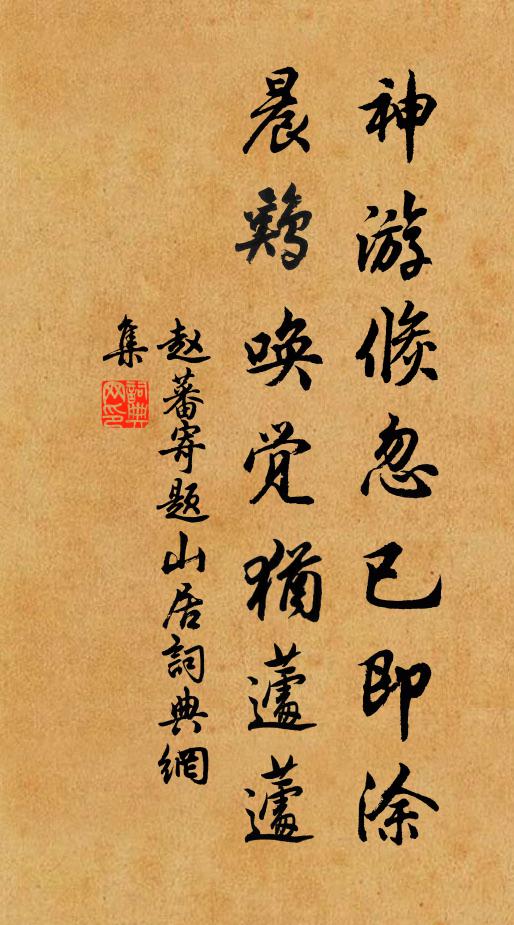 神游倐忽已即涂
晨鷄唤觉猶蘧蘧
赵蕃寄题山居詞典網
集
詞典网印